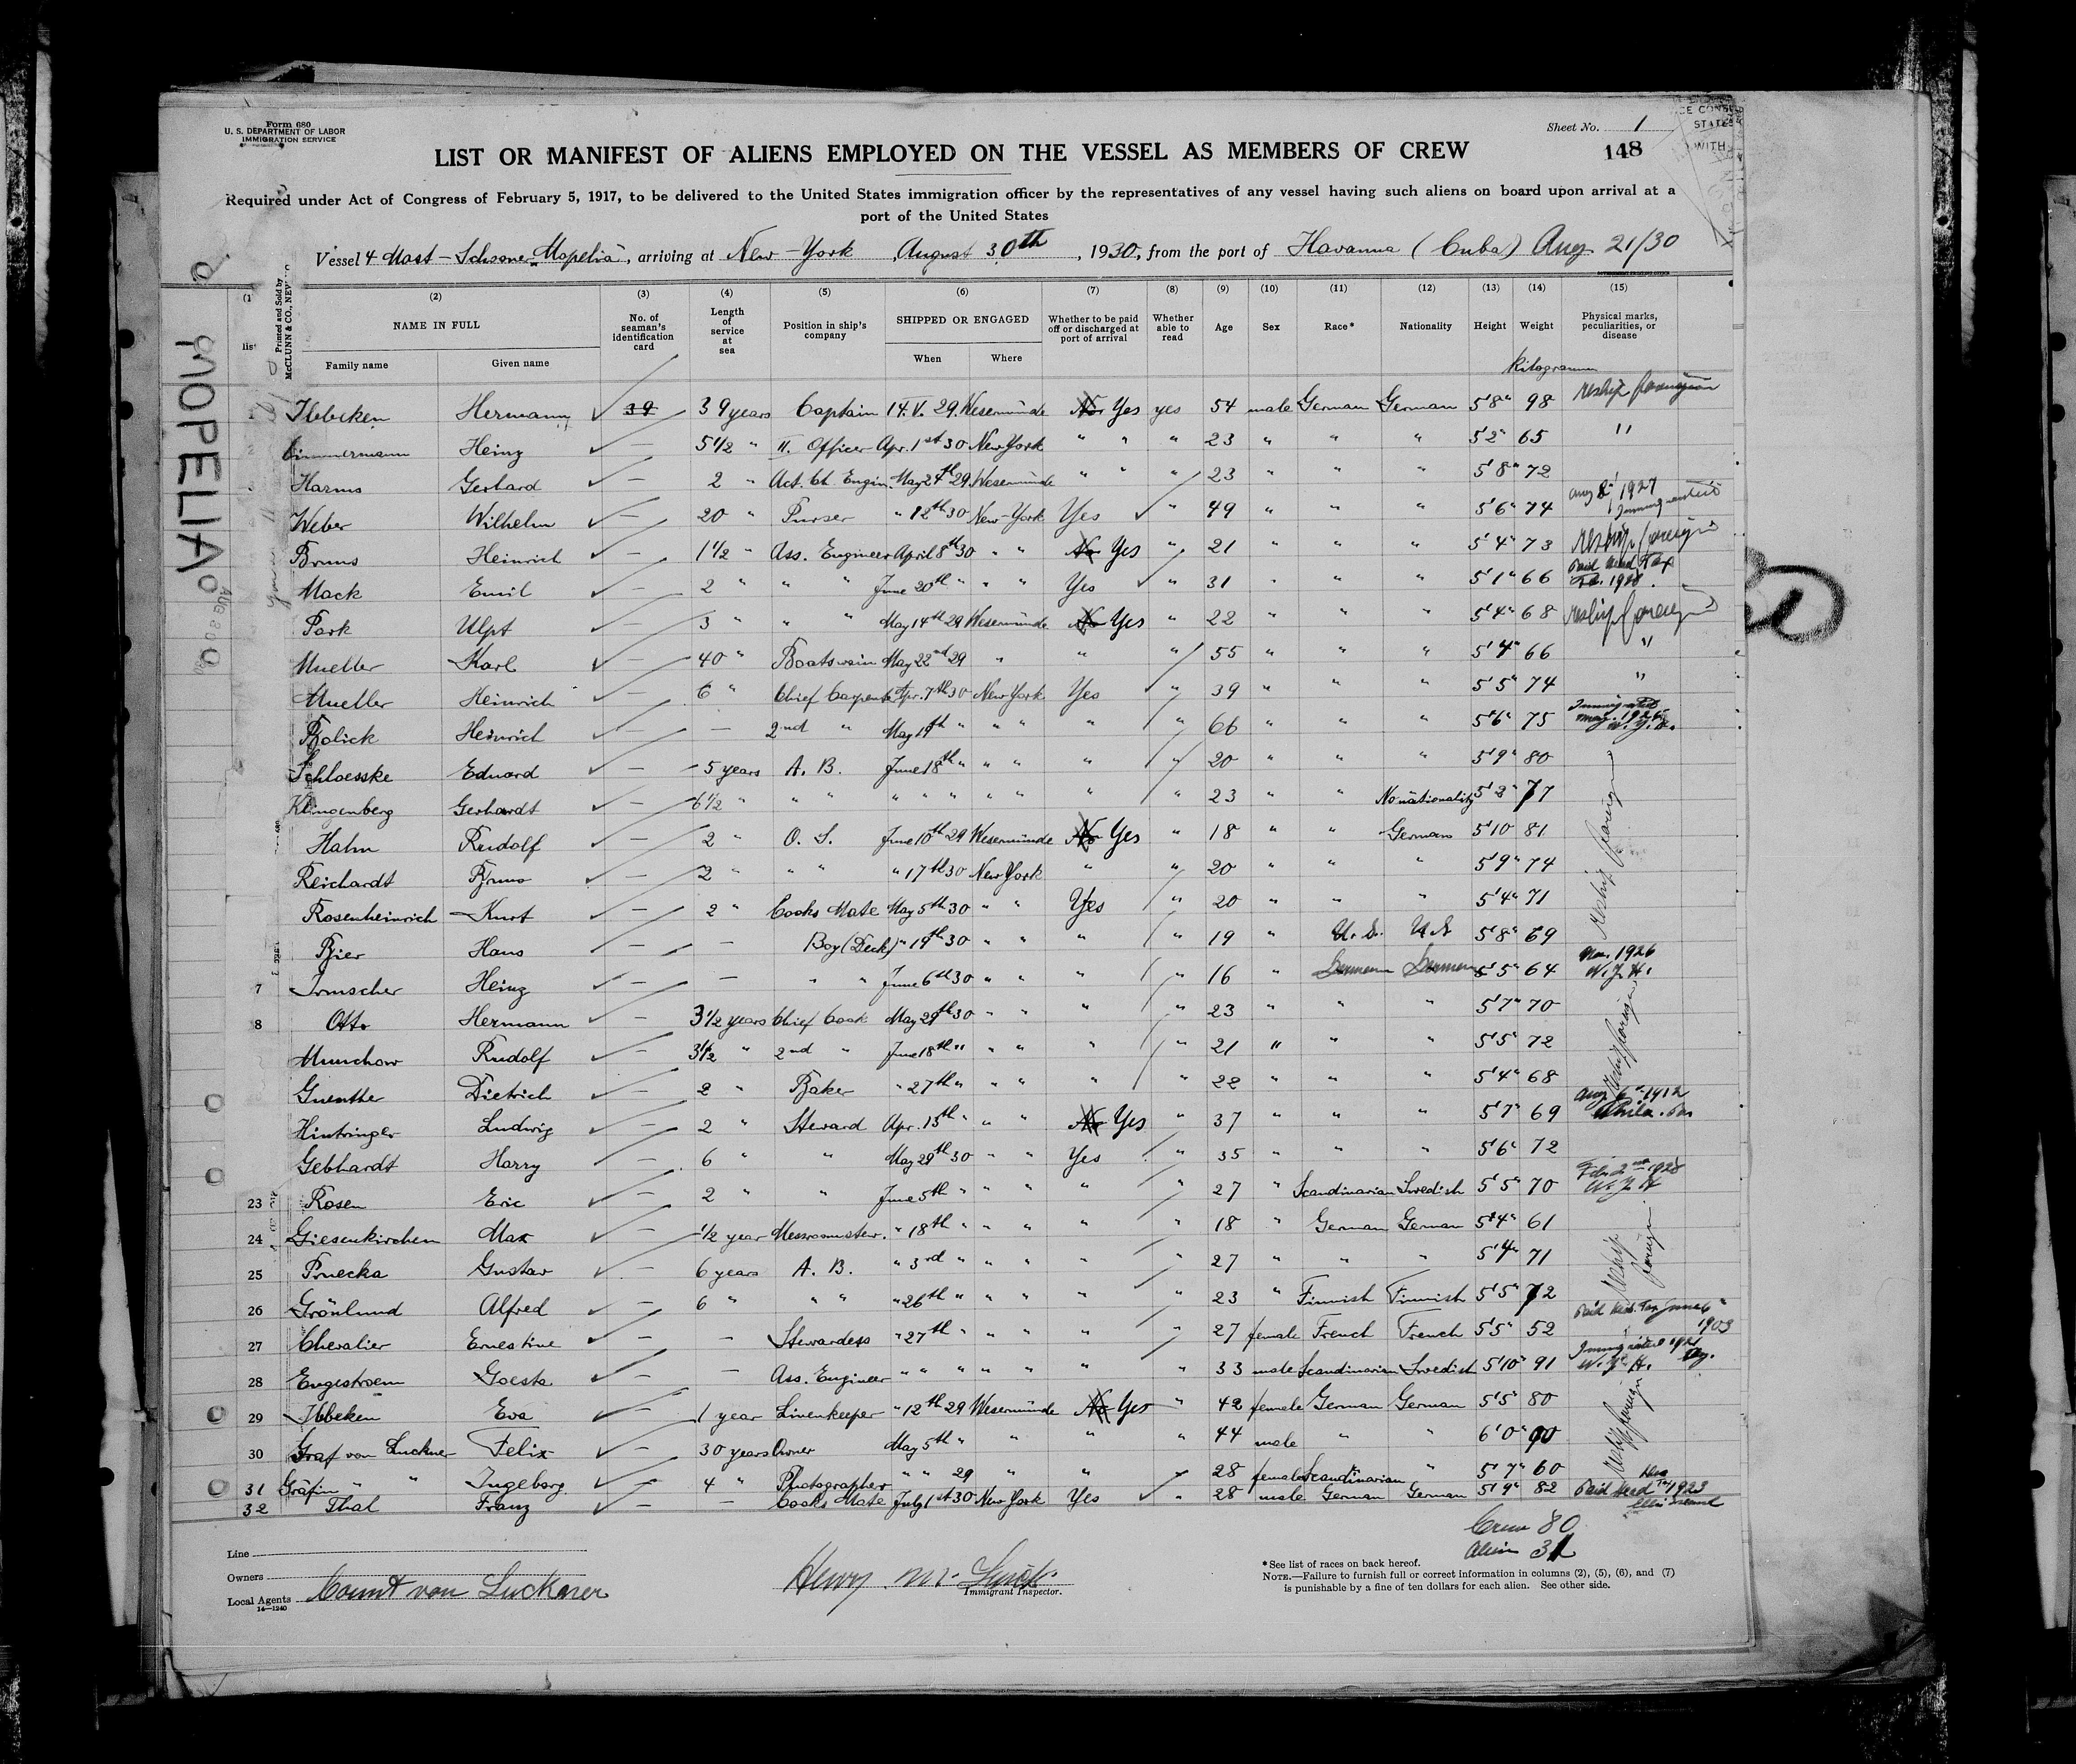 Form 680
U. S. DEPARTMENT OF LABOR
IMMIGRATION SERVICE
Sheet No. 1
148
LIST OR MANIFEST OF ALIENS EMPLOYED ON THE VESSEL AS MEMBERS OF CREW
Required under Act of Congress of February 5, 1917, to be delivered to the United States immigration officer by the representatives of any vessel having such aliens on board upon arrival at a
port of the United States
Vessel 4 Mast-Schooner Mopelia, arriving at New-York, August 30th, 1930, from the port of Havanna (Cuba) Aug 21/30
MOPELIA
(2) (3) (4) (5) (6) (7) (8) (9) (10) (11) (12) (13) (14) (15)
NAME IN FULL
Family name
Given name
No. of seaman's identification card
Length of service at sea
Position in ship's company
SHIPPED OR ENGAGED
When
Where
Whether to be paid off or discharged at port of arrival
Whether able to read
Age
Sex
Race*
Nationality
Height
Weight
Physical marks, peculiarities, or disease
Kilogramm
Ibbeken Hermann 39 39 years Captain 14.V.29. Wesermünde No Yes yes 54 male German German 5'8" 98 reship foreign
Zimmermann Heinz — 5 1/2 " II. Officer Apr. 1st 30 New York " " " 23 " " " 5'2" 65 "
Harms Gerhard — 2 " Act. Ch. Engin. May 24th 29 Wesermünde " " " 23 " " " 5'8" 72
Weber Wilhelm — 20 " Purser " 12th 30 New-York Yes " 49 " " " 5'6" 74
Bruns Heinrich — 1 1/2 " Ass. Engineer April 8th 30 " " No Yes " 21 " " " 5'4" 73 reship foreign
Mack Emil — 2 " " " June 20th " " " Yes " 31 " " " 5'1" 66 Paid Head Tax
Park Ulpt — 3 " " " May 14th 29 Wesermünde No Yes " 22 " " " 5'4" 68 reship foreign
Mueller Karl — 40 " Boatswain May 22nd 29 " " " 55 " " " 5'4" 66 "
Mueller Heinrich — 6 " Chief Carpenter Apr. 7th 30 New York Yes " 39 " " " 5'5" 74 "
Bolick Heinrich — — 2nd " May 19th " " " " " 66 " " " 5'6" 75
Schloesske Eduard — 5 years A. B. June 18th " " " " " 20 " " " 5'9" 80
Klingenberg Gerhardt — 6 1/2 " " " " " " " " " " 23 " " No nationality 5'2" 77
Hahn Rudolf — 2 " O. S. June 10th 29 Wesermünde No Yes " 18 " " German 5'10 81
Reichardt Bruno — 2 " " " " 17th 30 New York " " 20 " " " 5'9" 74
Rosenheinrich Kurt — 2 " Cooks Mate May 5th 30 " " Yes " 20 " " " 5'4" 71
Bier Hans — — Boy (Deck) " 19th 30 " " " " 19 " U. S. U S 5'8" 69
7 Irmscher Heinz — — " " June 6th 30 " " " " 16 " German German 5'5" 64
8 Otto Hermann — 3 1/2 years Chief Cook May 29th 30 " " " " 23 " " " 5'7" 70
Munchow Rudolf — 3 1/2 " 2nd " June 18th " " " " " 21 " " " 5'5" 72
Guenther Dietrich — 2 " Baker " 27th " " " " " 22 " " " 5'4" 68
Hintringer Ludwig — 2 " Steward Apr. 15th " " " No Yes " 37 " " " 5'7" 69
Gebhardt Harry — 6 " " May 29th 30 " " Yes " 35 " " " 5'6" 72
23 Rosen Eric — 2 " " June 5th " " " " " 27 " Scandinarian Swedish 5'5" 70
24 Giesenkirchen Max — 1/2 year Messroomstew. " 18th " " " " " 18 " German German 5'4" 61
25 Pruecka Gustav — 6 years A. B. " 3rd " " " " " 27 " " " 5'4" 71
reship foreign
26 Grönlund Alfred — 6 " " " " 26th " " " " " 23 " Finnish Finnish 5'5" 72
27 Chevalier Ernestine — — Stewardess " 27th " " " " " 27 female French French 5'5" 52
28 Engestroem Goesta — — Ass. Engineer " " " " " " " 33 male Scandinarian Swedish 5'10" 91
29 Ibbeken Eva — 1 year Linenkeeper " 12th 29 Wesermünde No Yes " 42 female German German 5'5" 80
30 Graf von Luckner Felix — 30 years Owner May 5th " " " " 44 male " " 6'0" 90
31 Gräfin " " Ingeborg — 4 " Photographer " " 29 " " " 28 female Scandinarian " 5'7" 60
32 Thal Franz — — Cooks Mate July 1st 30 New York Yes " 28 male German German 5'9" 82 Paid Head Tax 1923
Crew 80
Alien 31
Line
Owners
Local Agents Count von Luckner
14—1240
Henry
Immigrant Inspector.
*See list of races on back hereof.
NOTE.—Failure to furnish full or correct information in columns (2), (5), (6), and (7)
is punishable by a fine of ten dollars for each alien. See other side.